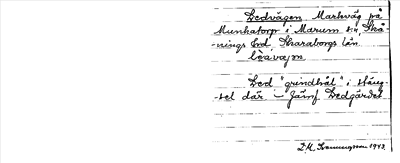 Ledvägen Markväg på
Munkatorp i Marum sn, Skå
-nings hd, Skaraborgs län
lèavajen
Led "grindhål" i stäng-
-sel där – Jämf Ledgärdet
1943